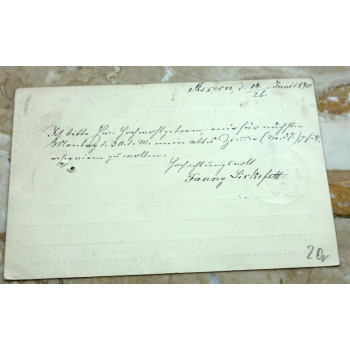 Assern, d. 14./26. Juni 1890
Ich bitte Euer Hochwohlgeboren, mir für nächsten
Montag d. 30. d. M. mein altes Zimmer (No. 37)
reserviren zu wollen.
Hochachtungsvoll
Fanny
20,